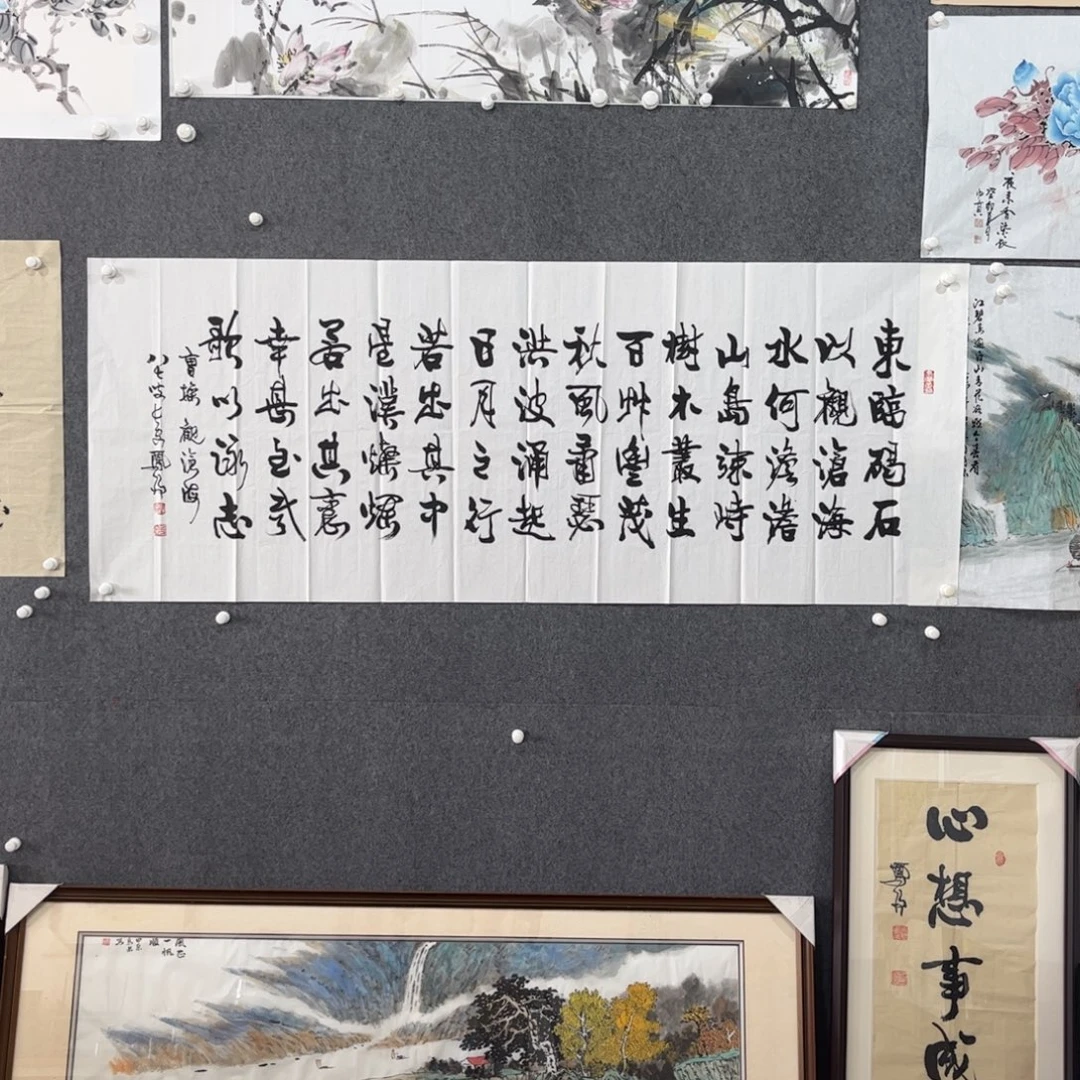 東臨碣石
以觀滄海
水何澹澹
山島竦峙
樹木叢生
百艸豐茂
秋風蕭瑟
洪波涌起
日月之行
若出其中
星漢燦爛
若出其裏
幸甚至哉
歌以詠志
曹操觀滄海
江碧鳥逾白山青花欲燃今春看
心想事成